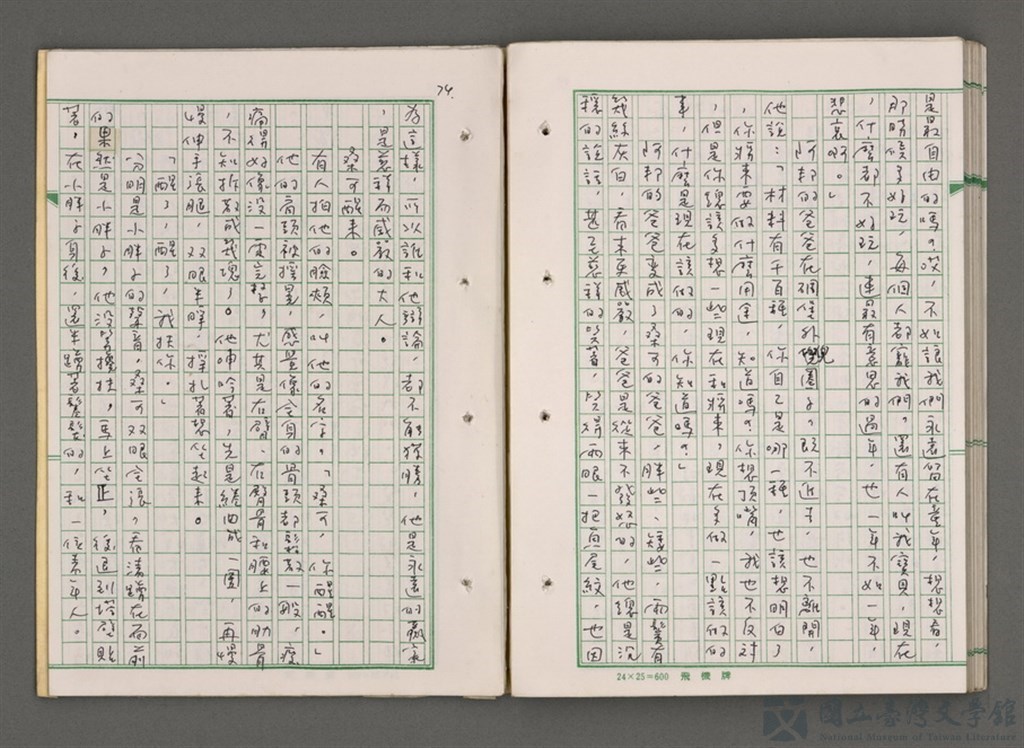 是最自由的嗎？哎，不如讓我們永遠留在童年，想想看，
那時候多好玩，每個人都寵我們，還有人叫我寶貝，現在
，什麼都不好玩，連最有意思的過年，也一年不如一年，
想哀啊。」
阿邦的爸爸在碉堡外圈子，既不近去，也不離開，
他說：「材料有千百種，你自己是哪一種，也該想明白了
，你將來要做什麼用途，知道嗎？你想頂嘴，我也不反對
，但是你總該多想一些現在和將來，現在多做一點該做的
事，什麼是現在該做的，你知道嗎？」
阿邦的爸爸變成了桑可的爸爸，胖些、矮些，兩鬢有
幾絲灰白，看來更威嚴，爸爸是從來不發怒的，他總是沉
穩的說話，甚至慈祥的笑著，笑得兩眼一把魚尾紋，也因
74.
為這樣，所以誰和他辯論，都不能獲勝，他是永遠的贏家
，是慈祥而威嚴的大人。
桑可醒來。
有人拍他的臉頰，叫他的名字。「桑可，你醒醒。」
他的肩頭被搖晃，感覺像全身的骨頭都鬆散一般，疼
痛得好像沒一處完整，尤其是右臂、右臀骨和腰上的肋骨
，不知拆散成幾塊了。他呻吟著，先是縮曲成一團，再慢
慢伸手張腿，雙眼半睜，掙扎著想坐起來。
「醒了，醒了，我扶你。」
分明是小胖子的聲音。桑可雙眼全張，看清蹲在面前
的果然是小胖子，他沒勞攙扶，馬上坐正，後退到塔壁貼
著，在小胖子身後，還半蹲著髮髮的，和一位素年人。
24×25=600 飛機牌
國立臺灣文學館
National Museum of Taiwan Literature